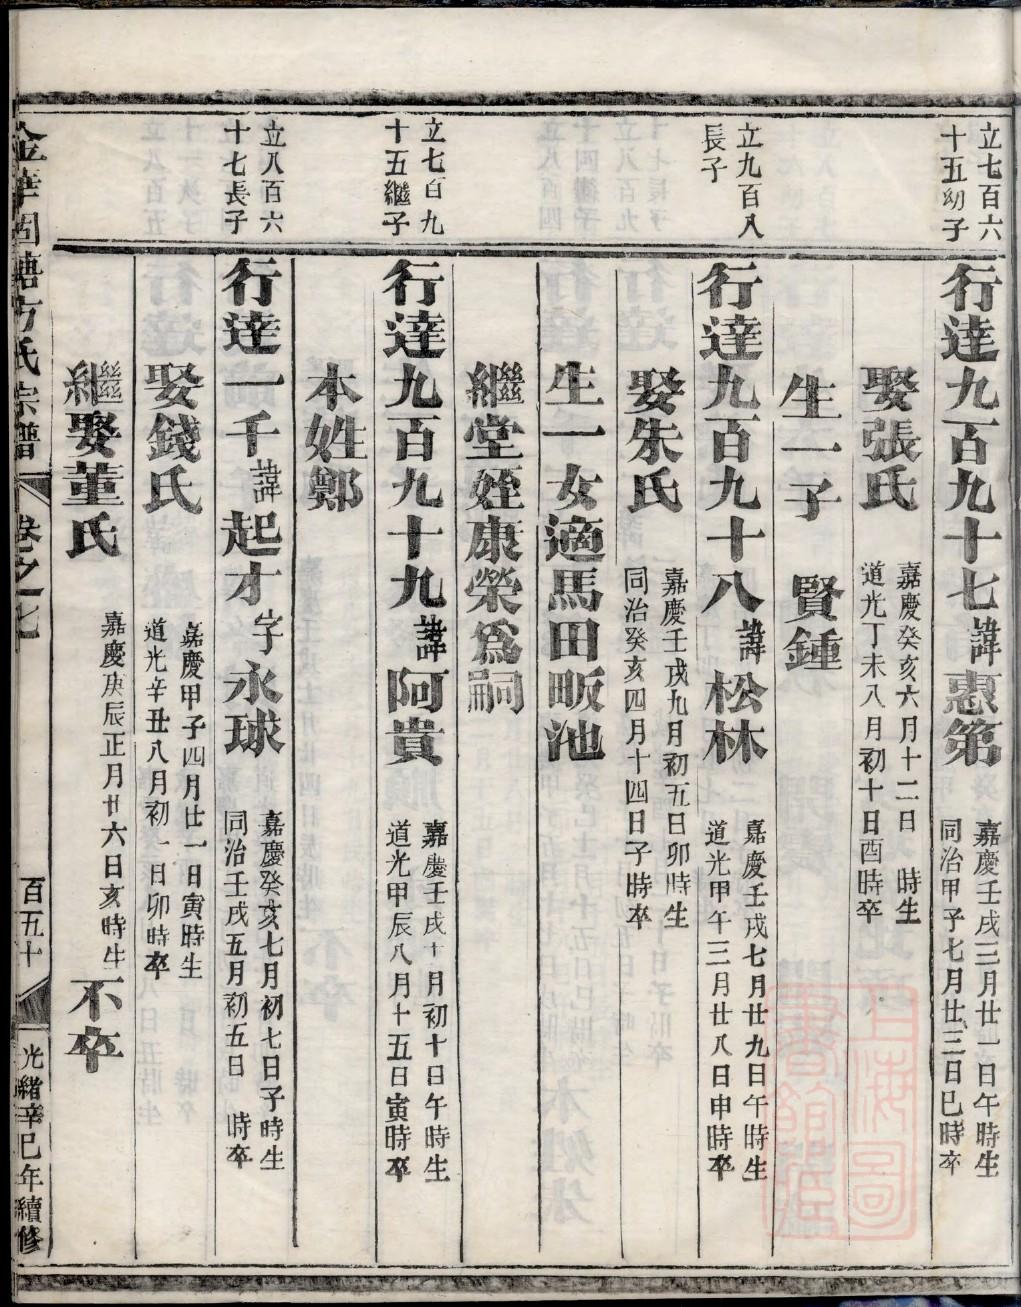 立七百六
十五幼子
行達九百九十七諱惠第
嘉慶壬戌三月廿一日午時生
同治甲子七月廿三日巳時卒
娶張氏
嘉慶癸亥六月十二日 時生
道光丁未八月初十日酉時卒
生一子 賢鍾
立九百八
長子
行達九百九十八諱松林
嘉慶壬戌七月廿九日午時生
道光甲午三月廿八日申時卒
娶朱氏
嘉慶壬戌九月初五日卯時生
同治癸亥四月十四日子時卒
生一女適馬田畈池
繼堂姪康榮為嗣
立七百九
十五繼子
行達九百九十九諱阿貴
嘉慶壬戌十月初十日午時生
道光甲辰八月十五日寅時卒
本姓鄭
立八百六
十七長子
行達一千諱起才字永球
嘉慶癸亥七月初七日子時生
同治壬戌五月初五日 時卒
娶錢氏
嘉慶甲子四月廿一日寅時生
道光辛丑八月初一日卯時卒
繼娶董氏
嘉慶庚辰正月廿六日亥時生
不卒
金華固塘方氏宗譜
卷之七
百五十
光緒辛巳年續修